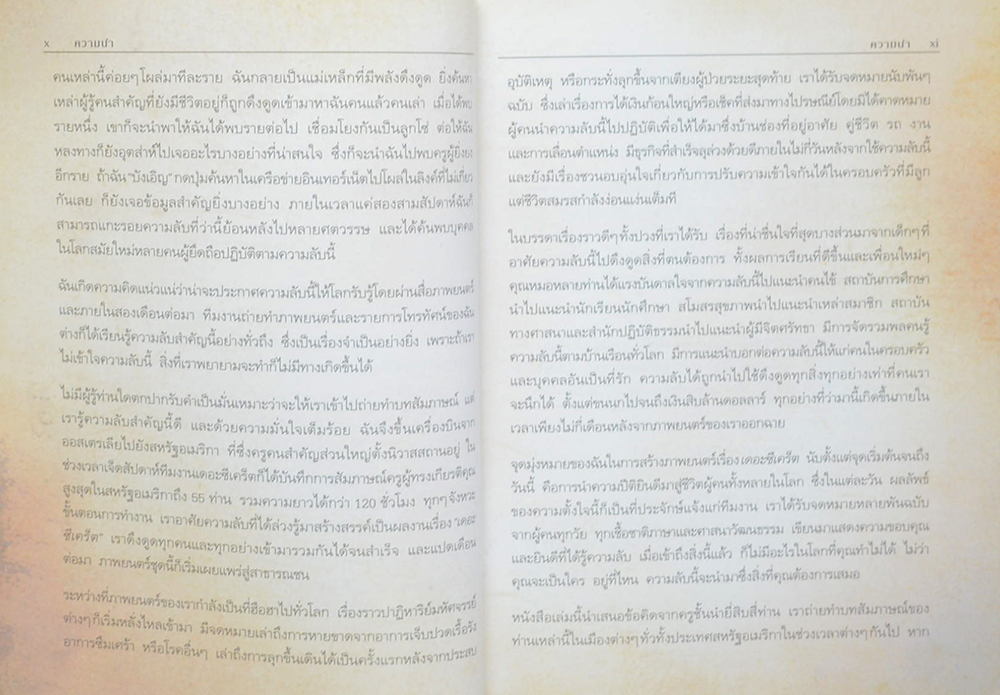 x ความนำ
คนเหล่านี้ค่อยๆ โผล่มาทีละราย ฉันกลายเป็นแม่เหล็กที่มีพลังดึงดูด ยิ่งค้นหา
เหล่าผู้รู้คนสำคัญที่ยังมีชีวิตอยู่ก็ถูกดึงดูดเข้ามาหาฉันคนแล้วคนเล่า เมื่อได้พบ
รายหนึ่ง เขาก็จะนำพาให้ฉันได้พบรายต่อไป เชื่อมโยงกันเป็นลูกโซ่ ต่อให้ฉัน
หลงทางก็ยังอุตส่าห์ไปเจออะไรบางอย่างที่น่าสนใจ ซึ่งก็จะนำฉันไปพบครูผู้ยิ่งยง
อีกราย ถ้าฉัน "บังเอิญ" กดปุ่มค้นหาในเครือข่ายอินเทอร์เน็ตไปโผล่ในลิงค์ที่ไม่เกี่ยว
กันเลย ก็ยังเจอข้อมูลสำคัญยิ่งบางอย่าง ภายในเวลาแค่สองสามสัปดาห์ฉันก็
สามารถแกะรอยความลับที่ว่านี้ย้อนหลังไปหลายศตวรรษ และได้ค้นพบบุคคล
ในโลกสมัยใหม่หลายคนผู้ยึดถือปฏิบัติตามความลับนี้
ฉันเกิดความคิดแน่วแน่ว่าน่าจะประกาศความลับนี้ให้โลกรับรู้โดยผ่านสื่อภาพยนตร์
และภายในสองเดือนต่อมา ทีมงานถ่ายทำภาพยนตร์และรายการโทรทัศน์ของฉัน
ต่างก็ได้เรียนรู้ความลับสำคัญนี้อย่างทั่วถึง ซึ่งเป็นเรื่องจำเป็นอย่างยิ่ง เพราะถ้าเรา
ไม่เข้าใจความลับนี้ สิ่งที่เราพยายามจะทำก็ไม่มีทางเกิดขึ้นได้
ไม่มีผู้รู้ท่านใดตกปากรับคำเป็นมั่นเหมาะว่าจะให้เราเข้าไปถ่ายทำบทสัมภาษณ์ แต่
เรารู้ความลับสำคัญนี้ดี และด้วยความมั่นใจเต็มร้อย ฉันจึงขึ้นเครื่องบินจาก
ออสเตรเลียไปยังสหรัฐอเมริกา ที่ซึ่งครูคนสำคัญส่วนใหญ่ตั้งนิวาสสถานอยู่ ใน
ช่วงเวลาเจ็ดสัปดาห์ทีมงานเดอะซีเคร็ตก็ได้บันทึกการสัมภาษณ์ครูผู้ทรงเกียรติคุณ
สูงสุดในสหรัฐอเมริกาถึง 55 ท่าน รวมความยาวได้กว่า 120 ชั่วโมง ทุกๆ จังหวะ
ขั้นตอนการทำงาน เราอาศัยความลับที่ได้ล่วงรู้มาสร้างสรรค์เป็นผลงานเรื่อง "เดอะ
ซีเคร็ต" เราดึงดูดทุกคนและทุกอย่างเข้ามารวมกันได้จนสำเร็จ และแปดเดือน
ต่อมา ภาพยนตร์ชุดนี้ก็เริ่มเผยแพร่สู่สาธารณชน
ระหว่างที่ภาพยนตร์ของเรากำลังเป็นที่ฮือฮาไปทั่วโลก เรื่องราวปาฏิหาริย์มหัศจรรย์
ต่างๆ ก็เริ่มหลั่งไหลเข้ามา มีจดหมายเล่าถึงการหายขาดจากอาการเจ็บปวดเรื้อรัง
อาการซึมเศร้า หรือโรคอื่นๆ เล่าถึงการลุกขึ้นเดินได้เป็นครั้งแรกหลังจากประสบ
ความนำ xi
อุบัติเหตุ หรือกระทั่งลุกขึ้นจากเตียงผู้ป่วยระยะสุดท้าย เราได้รับจดหมายนับพันๆ
ฉบับ ซึ่งเล่าเรื่องการได้เงินก้อนใหญ่หรือเช็คที่ส่งมาทางไปรษณีย์โดยมิได้คาดหมาย
ผู้คนนำความลับนี้ไปปฏิบัติเพื่อให้ได้มาซึ่งบ้านช่องที่อยู่อาศัย คู่ชีวิต รถ งาน
และการเลื่อนตำแหน่ง มีธุรกิจที่สำเร็จลุล่วงด้วยดีภายในไม่กี่วันหลังจากใช้ความลับนี้
และยังมีเรื่องชวนอบอุ่นใจเกี่ยวกับการปรับความเข้าใจกันได้ในครอบครัวที่มีลูก
แต่ชีวิตสมรสกำลังง่อนแง่นเต็มที
ในบรรดาเรื่องราวดีๆ ทั้งปวงที่เราได้รับ เรื่องที่น่าชื่นใจที่สุดบางส่วนมาจากเด็กๆ ที่
อาศัยความลับนี้ไปดึงดูดสิ่งที่ตนต้องการ ทั้งผลการเรียนที่ดีขึ้นและเพื่อนใหม่ๆ
คุณหมอหลายท่านได้แรงบันดาลใจจากความลับนี้ไปแนะนำคนไข้ สถาบันการศึกษา
นำไปแนะนำนักเรียนนักศึกษา สโมสรสุขภาพนำไปแนะนำเหล่าสมาชิก สถาบัน
ทางศาสนาและสำนักปฏิบัติธรรมนำไปแนะนำผู้มีจิตศรัทธา มีการจัดรวมพลคนรู้
ความลับนี้ตามบ้านเรือนทั่วโลก มีการแนะนำบอกต่อความลับนี้ให้แก่คนในครอบครัว
และบุคคลอันเป็นที่รัก ความลับได้ถูกนำไปใช้ดึงดูดทุกสิ่งทุกอย่างเท่าที่คนเรา
จะนึกได้ ตั้งแต่ขนนกไปจนถึงเงินสิบล้านดอลลาร์ ทุกอย่างที่ว่ามานี้เกิดขึ้นภายใน
เวลาเพียงไม่กี่เดือนหลังจากภาพยนตร์ของเราออกฉาย
จุดมุ่งหมายของฉันในการสร้างภาพยนตร์เรื่อง เดอะซีเคร็ต นับตั้งแต่จุดเริ่มต้นจนถึง
วันนี้ คือการนำความปีติยินดีมาสู่ชีวิตผู้คนทั้งหลายในโลก ซึ่งในแต่ละวัน ผลลัพธ์
ของความตั้งใจนี้ก็เป็นที่ประจักษ์แจ้งแก่ทีมงาน เราได้รับจดหมายหลายพันฉบับ
จากผู้คนทุกวัย ทุกเชื้อชาติภาษาและศาสนาวัฒนธรรม เขียนมาแสดงความขอบคุณ
และยินดีที่ได้รู้ความลับ เมื่อเข้าถึงสิ่งนี้แล้ว ก็ไม่มีอะไรในโลกที่คุณทำไม่ได้ ไม่ว่า
คุณจะเป็นใคร อยู่ที่ไหน ความลับนี้จะนำมาซึ่งสิ่งที่คุณต้องการเสมอ
หนังสือเล่มนี้นำเสนอข้อคิดจากครูชั้นนำยี่สิบสี่ท่าน เราถ่ายทำบทสัมภาษณ์ของ
ท่านเหล่านี้ในเมืองต่างๆ ทั่วทั้งประเทศสหรัฐอเมริกาในช่วงเวลาต่างๆ กันไป หาก